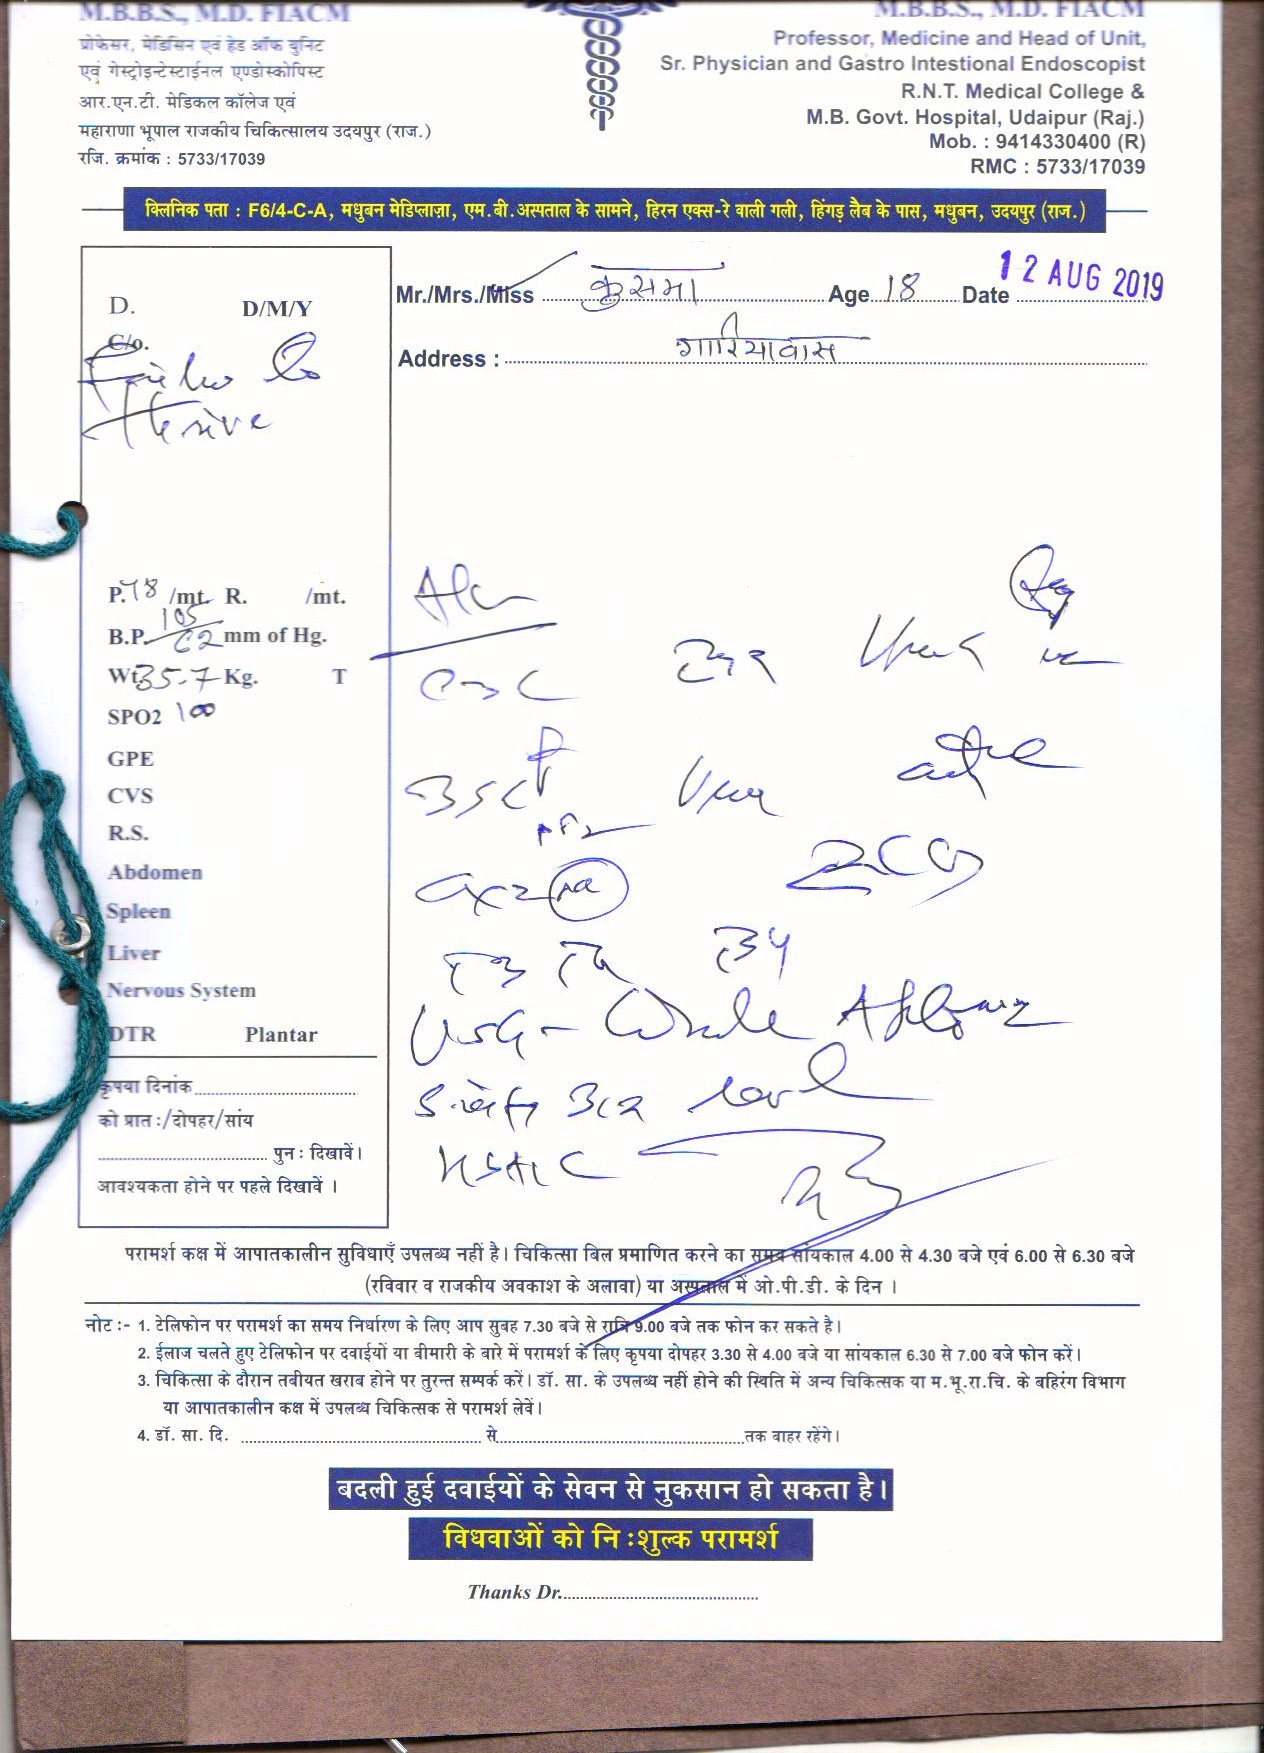 M.B.B.S., M.D. FIACM
प्रोफेसर, मेडिसिन एवं हेड ऑफ युनिट
एवं गेस्ट्रोइन्टेस्टाईनल एण्डोस्कोपिस्ट
आर.एन.टी. मेडिकल कॉलेज एवं
महाराणा भूपाल राजकीय चिकित्सालय उदयपुर (राज.)
रजि. क्रमांक : 5733/17039
M.B.B.S., M.D. FIACM
Professor, Medicine and Head of Unit,
Sr. Physician and Gastro Intestional Endoscopist
R.N.T. Medical College &
M.B. Govt. Hospital, Udaipur (Raj.)
Mob. : 9414330400 (R)
RMC : 5733/17039
क्लिनिक पता : F6/4-C-A, मधुबन मेडिप्लाज़ा, एम.बी.अस्पताल के सामने, हिरन एक्स-रे वाली गली, हिंगड़ लैब के पास, मधुबन, उदयपुर (राज.)
Mr./Mrs./Miss कुसमा Age 18 Date 12 AUG 2019
Address : गारियावास
D. D/M/Y
C/o.
P. 78 /mt. R. /mt.
B.P. 105/62 mm of Hg.
Wt. 35.7 Kg. T
SPO2 100
GPE
CVS
R.S.
Abdomen
Spleen
Liver
Nervous System
DTR Plantar
कृपया दिनांक
को प्रात :/दोपहर/सांय
पुन : दिखावें।
आवश्यकता होने पर पहले दिखावें ।
CBC
ECG
T3 T4
USG - Whole Abdomen
B12 level
परामर्श कक्ष में आपातकालीन सुविधाएँ उपलब्ध नहीं है। चिकित्सा बिल प्रमाणित करने का समय सांयकाल 4.00 से 4.30 बजे एवं 6.00 से 6.30 बजे
(रविवार व राजकीय अवकाश के अलावा) या अस्पताल में ओ.पी.डी. के दिन ।
नोट :- 1. टेलिफोन पर परामर्श का समय निर्धारण के लिए आप सुबह 7.30 बजे से रात्रि 9.00 बजे तक फोन कर सकते है।
2. ईलाज चलते हुए टेलिफोन पर दवाईयों या बीमारी के बारे में परामर्श के लिए कृपया दोपहर 3.30 से 4.00 बजे या सांयकाल 6.30 से 7.00 बजे फोन करें।
3. चिकित्सा के दौरान तबीयत खराब होने पर तुरन्त सम्पर्क करें। डॉ. सा. के उपलब्ध नहीं होने की स्थिति में अन्य चिकित्सक या म.भू.रा.चि. के बहिरंग विभाग
या आपातकालीन कक्ष में उपलब्ध चिकित्सक से परामर्श लेवें।
4. डॉ. सा. दि. से तक बाहर रहेंगे।
बदली हुई दवाईयों के सेवन से नुकसान हो सकता है।
विधवाओं को नि :शुल्क परामर्श
Thanks Dr.